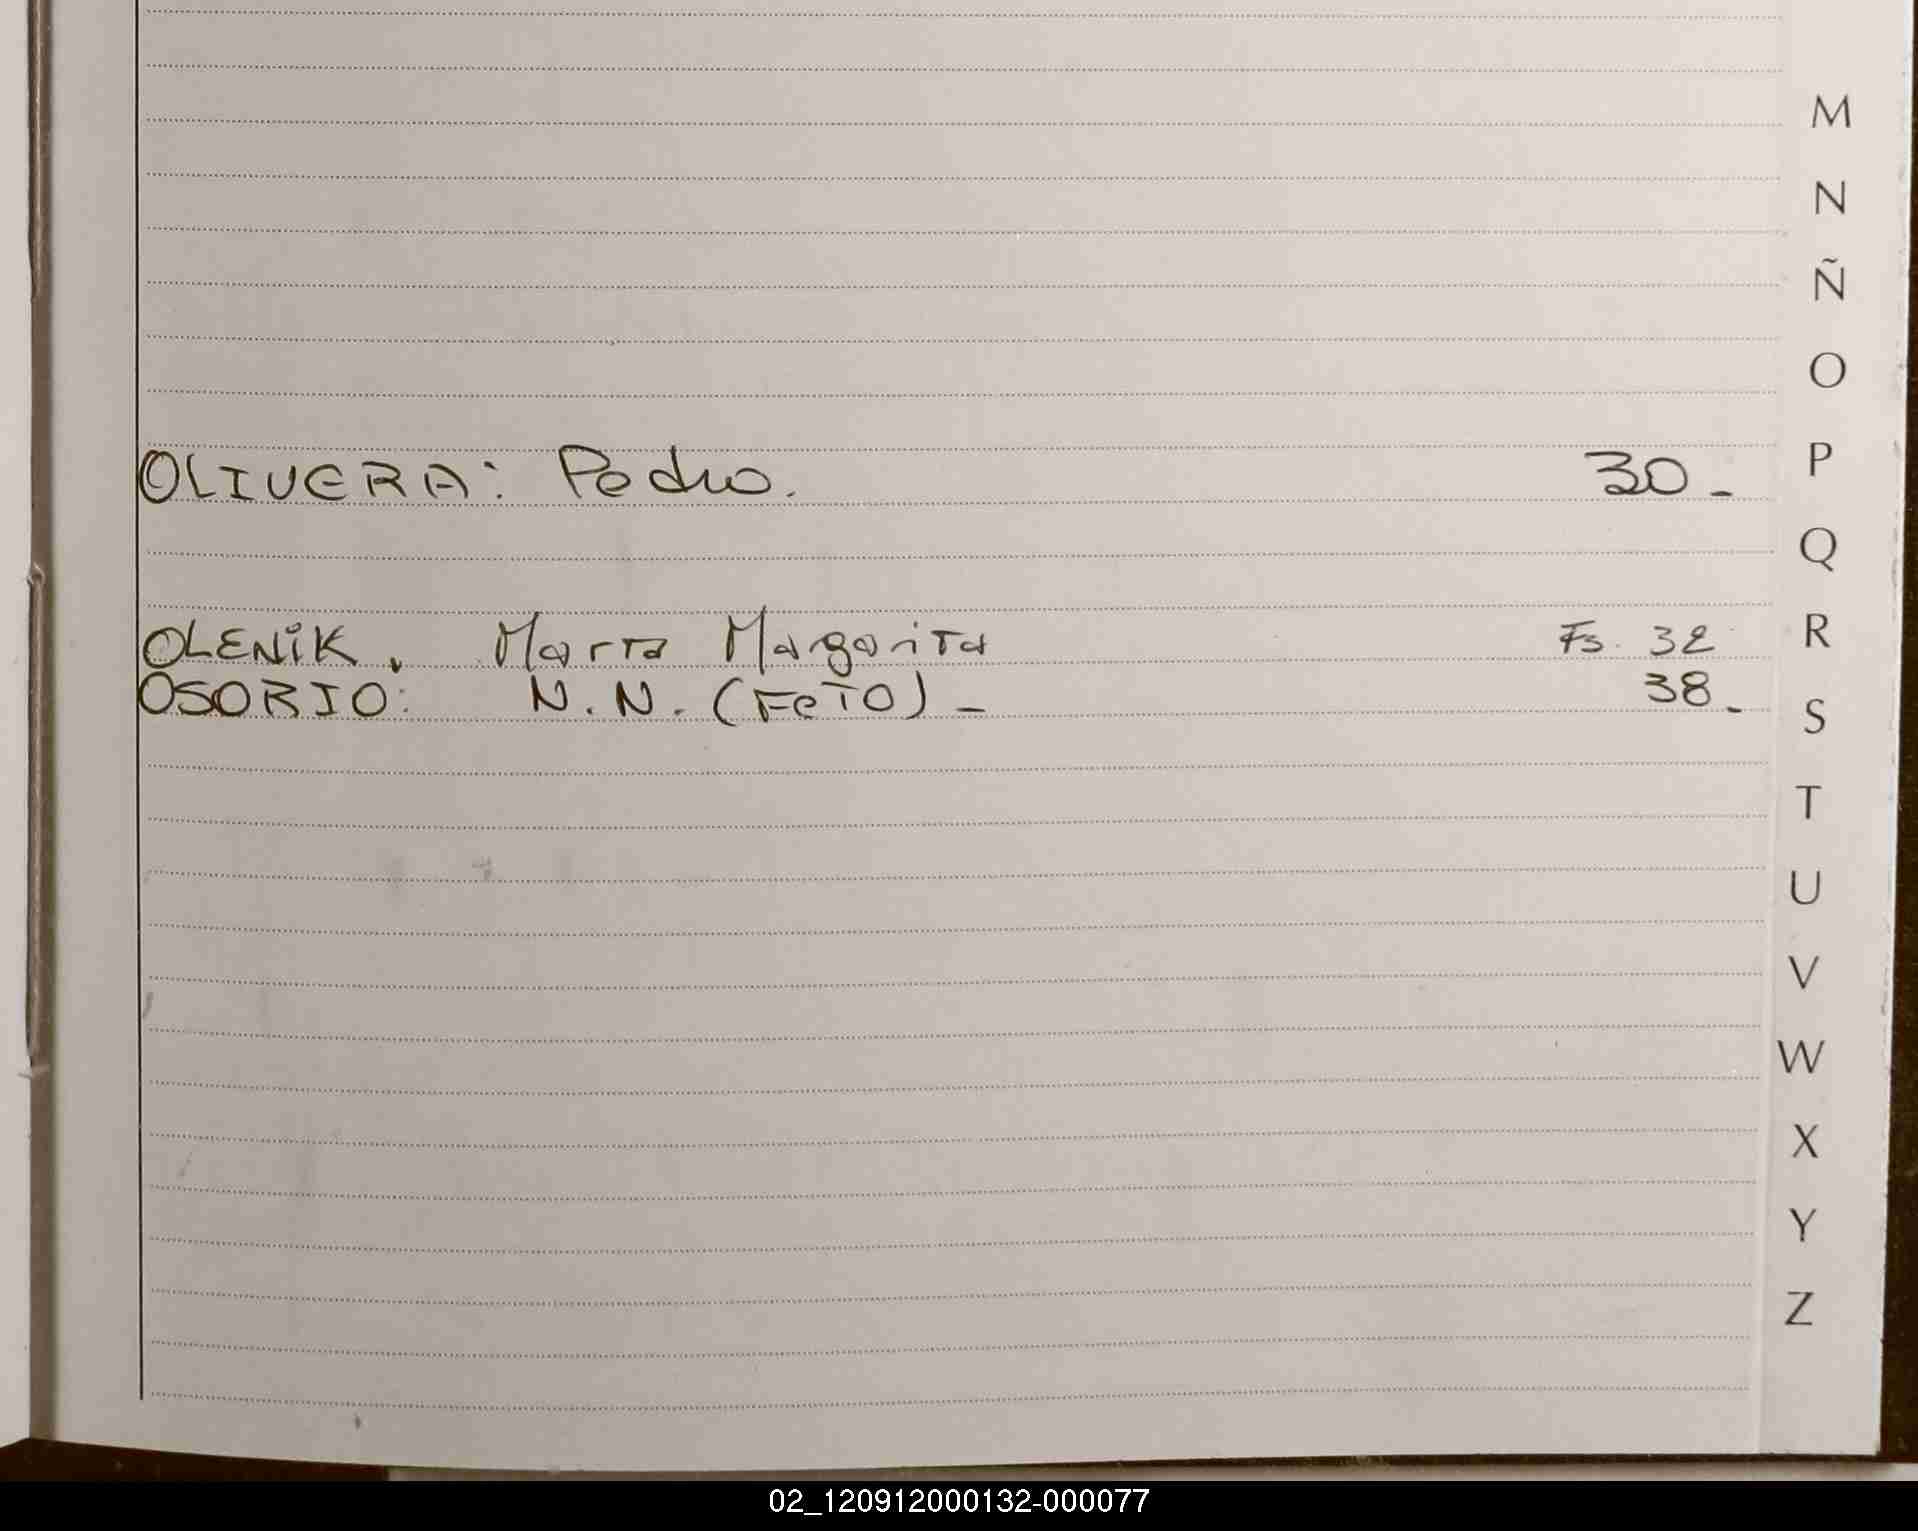 M
N
Ñ
O
OLIVERA: Pedro. 30_
P
Q
OLENiK. Marta Margarita Fs. 32
R
OSORIO: N.N. (FeTO)_ 38_
S
T
U
V
W
X
Y
Z
02_120912000132-000077